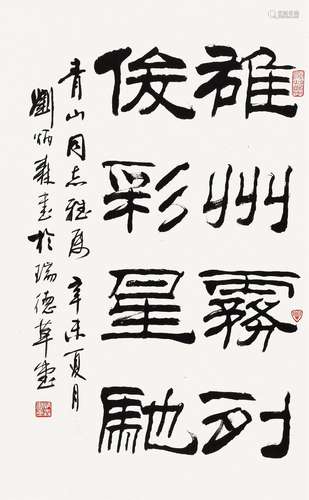 雄州霧列
俊彩星馳
青山同志雅属 辛未夏月
劉炳森書於瑞德草堂